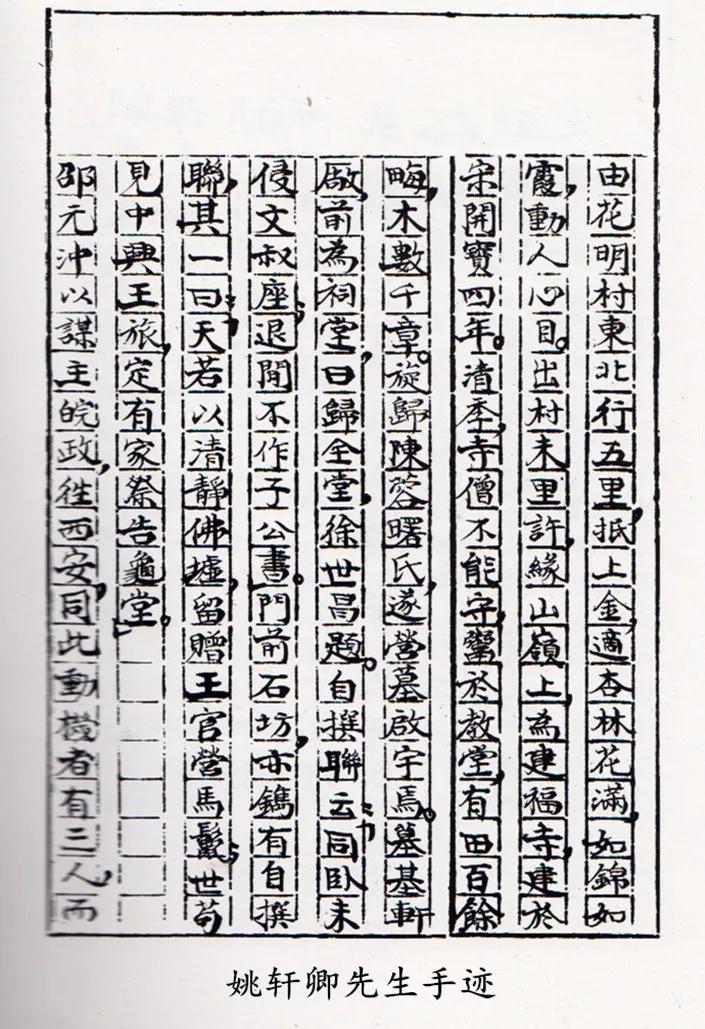 由花明村東北行五里,抵上金,適杏林花滿,如錦如
霞,動人心目。出村未里許,緣山嶺上,為建福寺,建於
宋開寶四年。清季,寺僧不能守,鬻於教堂,有田百餘
畮,木數千章。旋歸陳蓉曙氏,遂營墓啟宇焉。墓基軒
廠,前為祠堂,曰歸全堂,徐世昌題。自撰聯云:「同臥未
侵文叔座;退閒不作子公書。門前石坊,亦鐫有自撰
聯,其一曰:「天若以清靜佛墟,留贈王官營馬鬣;世苟
見中興王旅,定有家祭告龜堂。」
邵元沖以謀主皖政,往西安,同此動機者有三人,而
姚轩卿先生手迹